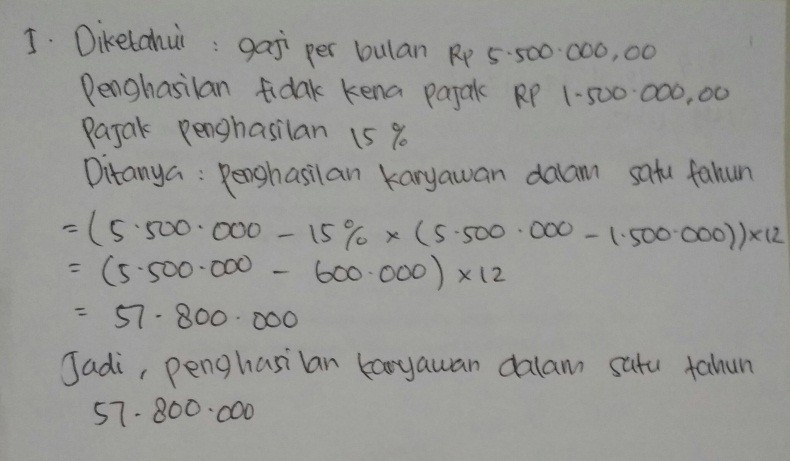 I. Diketahui : gaji per bulan Rp 5.500.000,00
Penghasilan tidak kena pajak RP 1.500.000,00
Pajak penghasilan 15 %
Ditanya : penghasilan karyawan dalam satu tahun
= (5.500.000 - 15% × (5.500.000 - 1.500.000))×12
= (5.500.000 - 600.000) ×12
= 57.800.000
Jadi, penghasilan karyawan dalam satu tahun
57.800.000